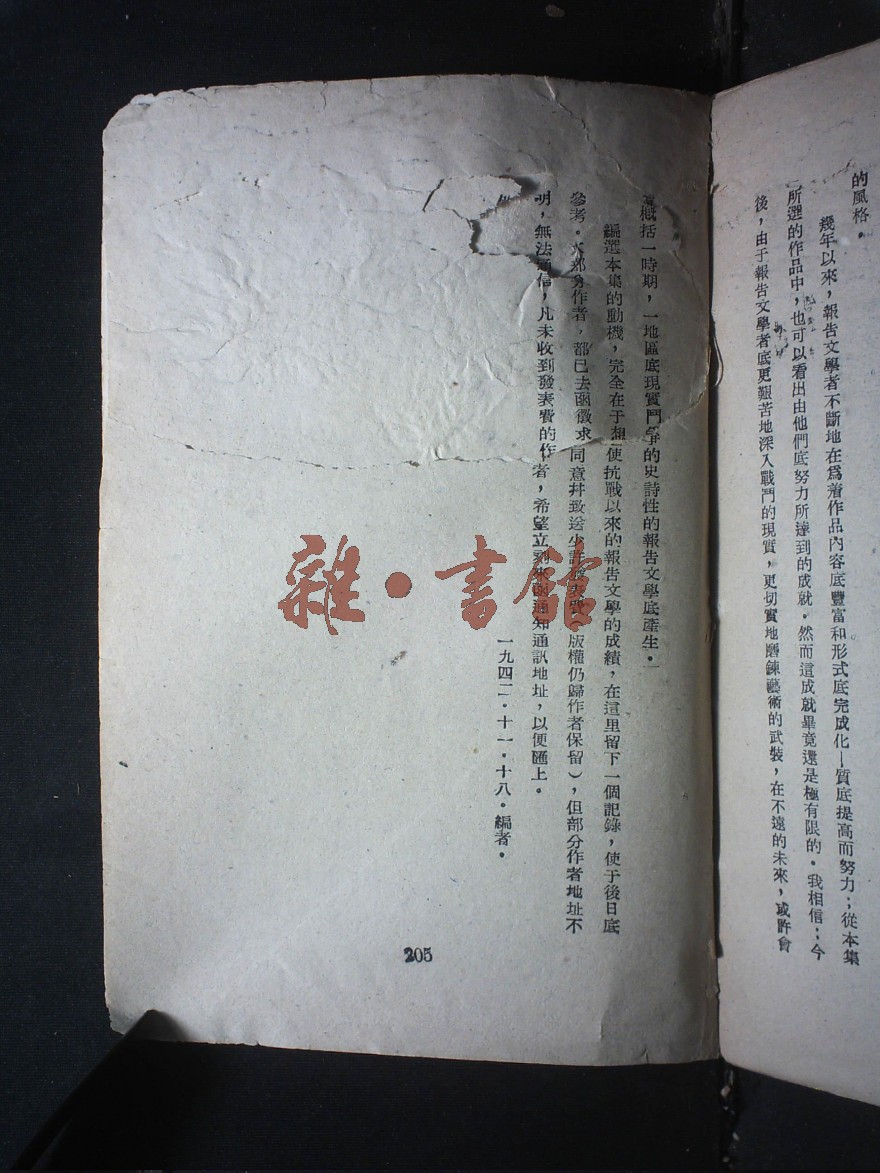 的風格。
幾年以來，報告文學者不斷地在爲著作品內容底豐富和形式底完成化—質底提高而努力；從本集
所選的作品中，也可以看出由他們底努力所達到的成就。然而這成就畢竟還是極有限的。我相信；今
後，由于報告文學者底更艱苦地深入戰鬥的現實，更切實地磨鍊藝術的武裝，在不遠的未來，或許會
概括一時期，一地區底現實鬥爭的史詩性的報告文學底產生。
編選本集的動機，完全在于想使抗戰以來的報告文學的成績，在這里留下一個記錄，使于後日底
參考。大部分作者，都已去函徵求同意并致送少許發表費 版權仍歸作者保留），但部分作者地址不
明，無法通信，凡未收到發表費的作者，希望立刻來函通知通訊地址，以便匯上。
一九四二·十一·十八·編者。
205
雜·書館